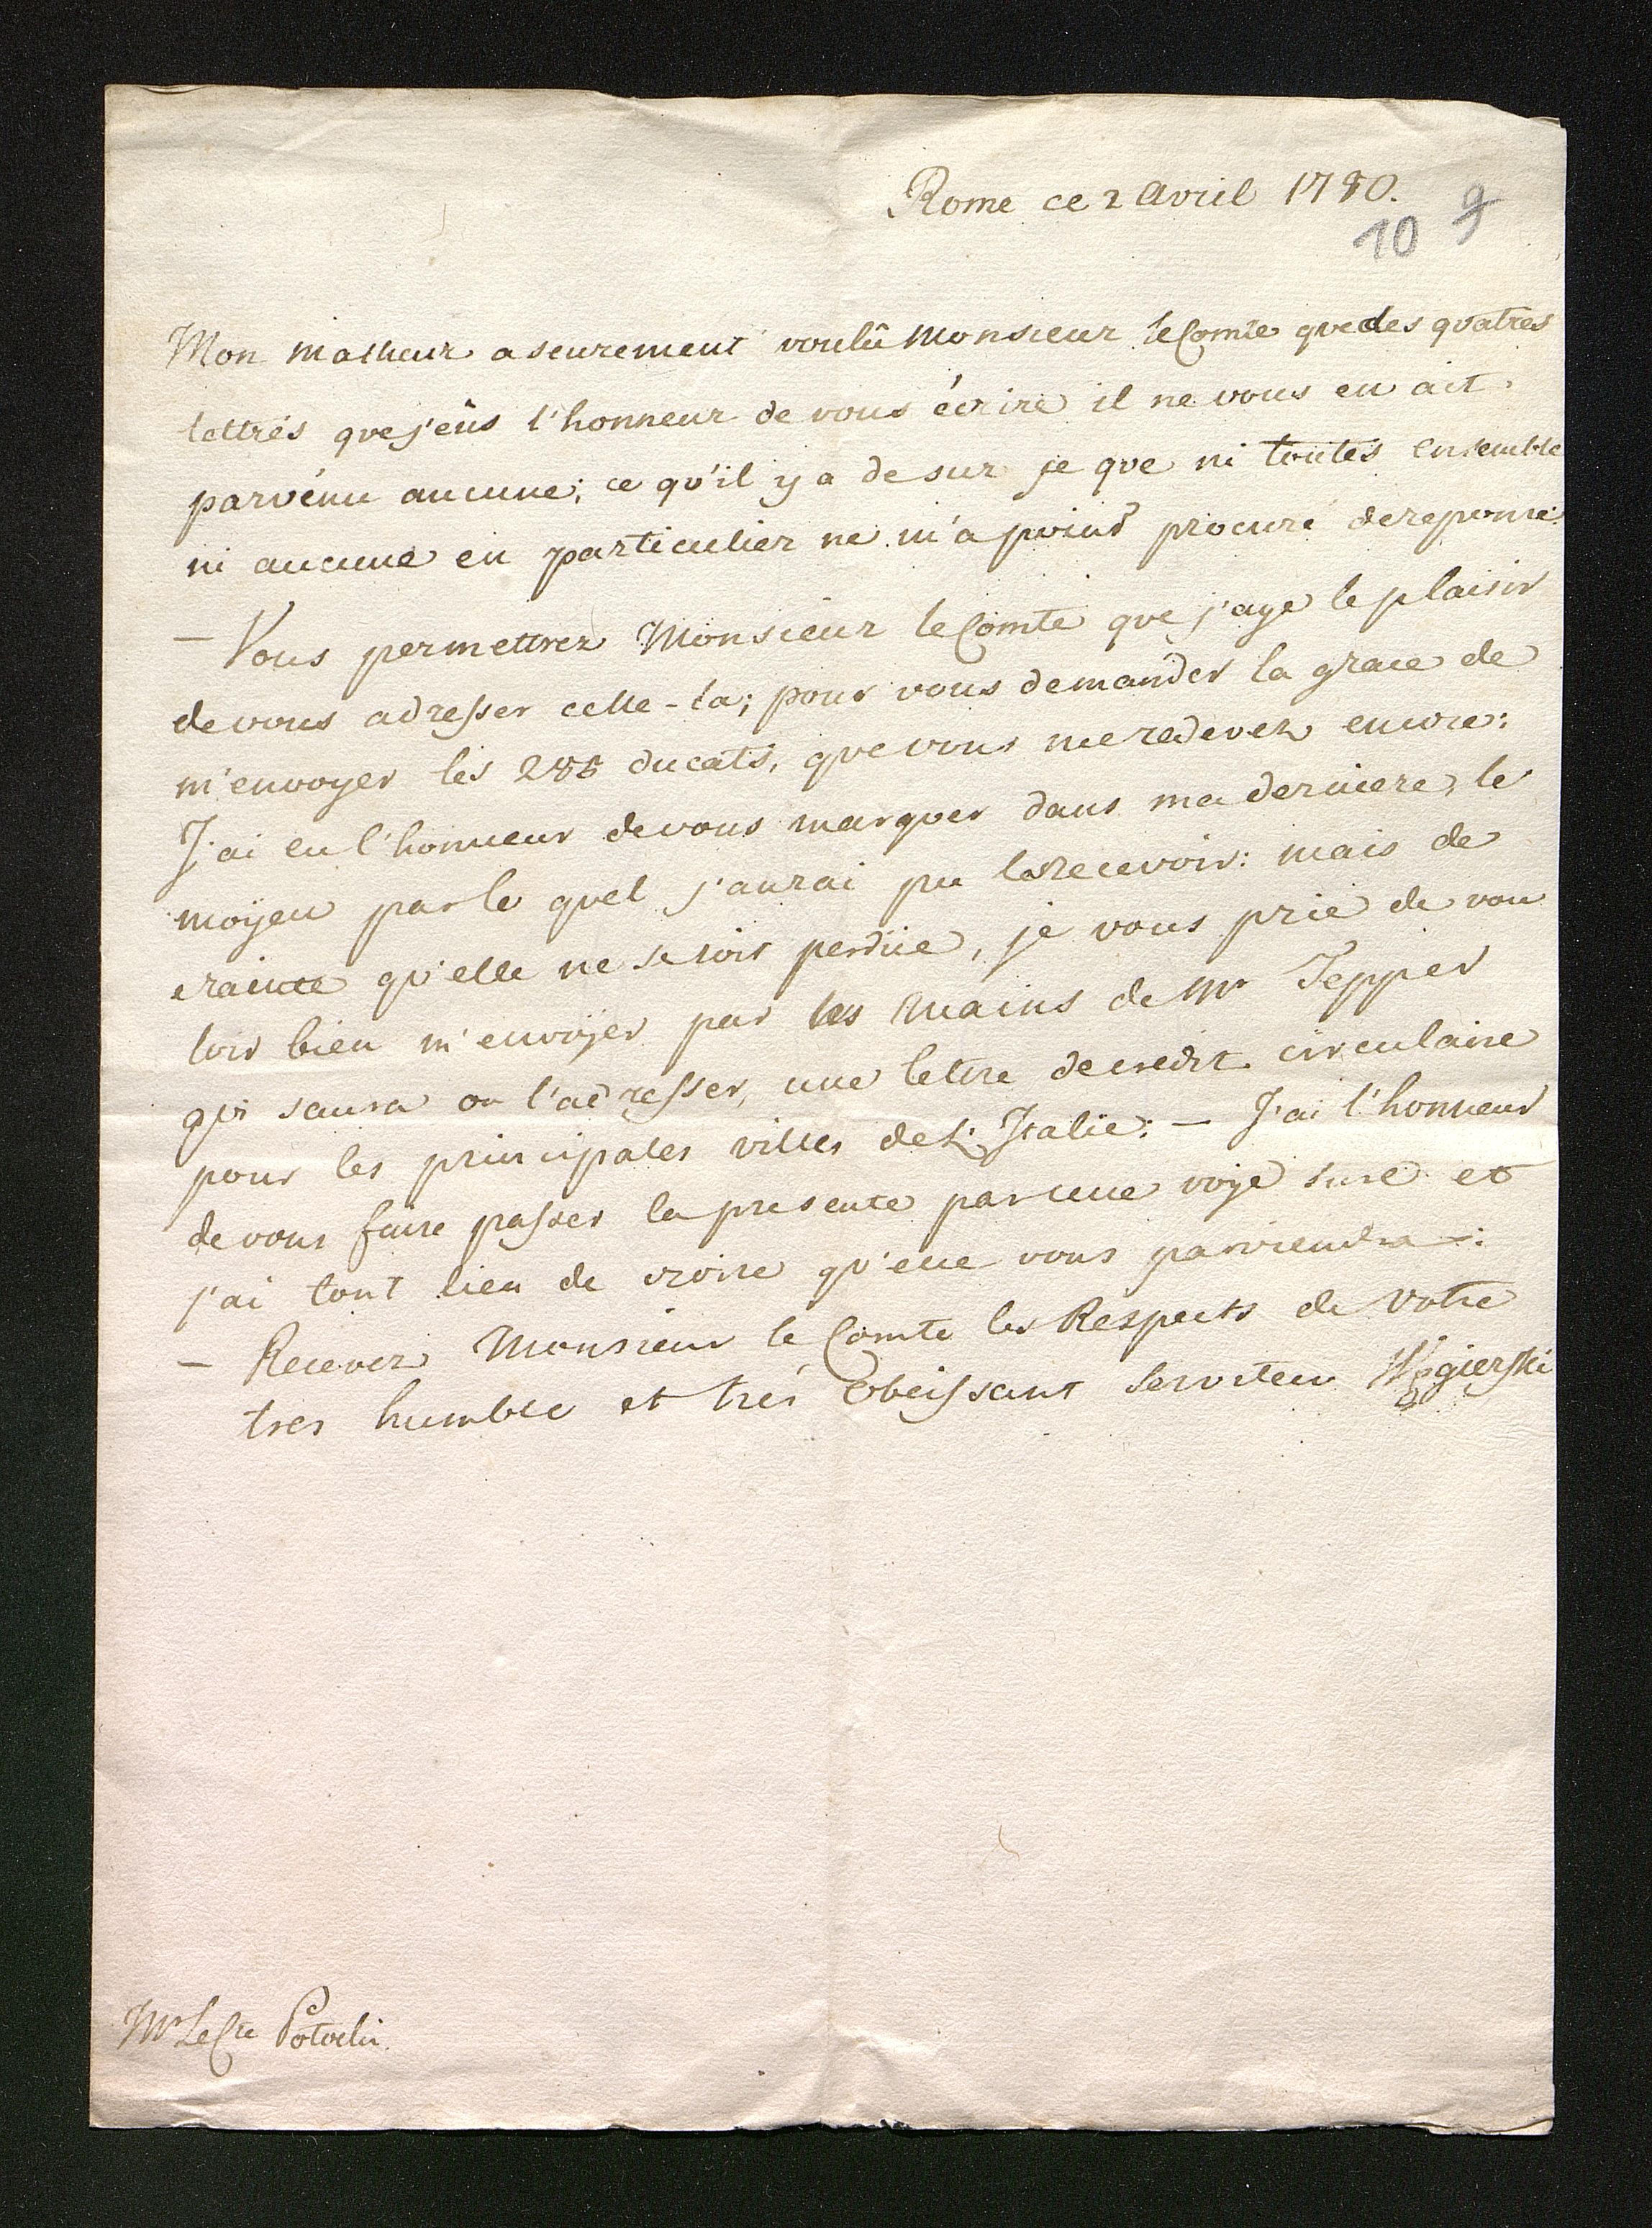 Rome ce 2 Avril 1780.
10 9
Mon malheur a seurement voulû Monsieur le Comte que des quatres
lettrés que j'eûs l'honneur de vous écrire il ne vous en ait
parvénu aucune; ce qu'il y a de sur je que ni toutes ensemble
ni aucune en particulier ne m'a point procuré de reponse.
— Vous permettrez Monsieur le Comte que j'aye le plaisir
de vous adresser celle-la; pour vous demander la grace de
m'envoyer les 285 ducats, que vous me redevez encore:
J'ai eu l'honneur de vous marquer dans ma derniere, le
moÿen par le quel j'aurai pu les recevoir: mais de
crainte qu'elle ne se soit perdüe, je vous prie de vou
loir bien m'envoÿer par les mains de Mr Tepper
qui saura ou l'adresser, une lettre de credit circulaire
pour les principales villes de L'Italie: — J'ai l'honneur
de vous faire passer la presente par une voye sure et
j'ai tout lieu de croire qu'elle vous parviendra:
— Recevez Monsieur le Comte les Respects de votre
tres humble et trés Obeissant Serviteur Węgierski
Mr Le Cte Potocki